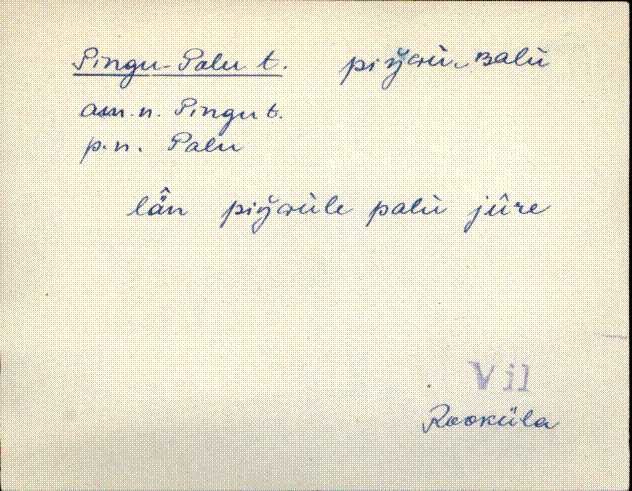 Pingu-Palu t. piŋ̆ɢù-ʙalù
am.n. Pingu t.
p.n. Palu
lä̂n piŋ̆ɢùle palù jûre
Vil
Rooküla